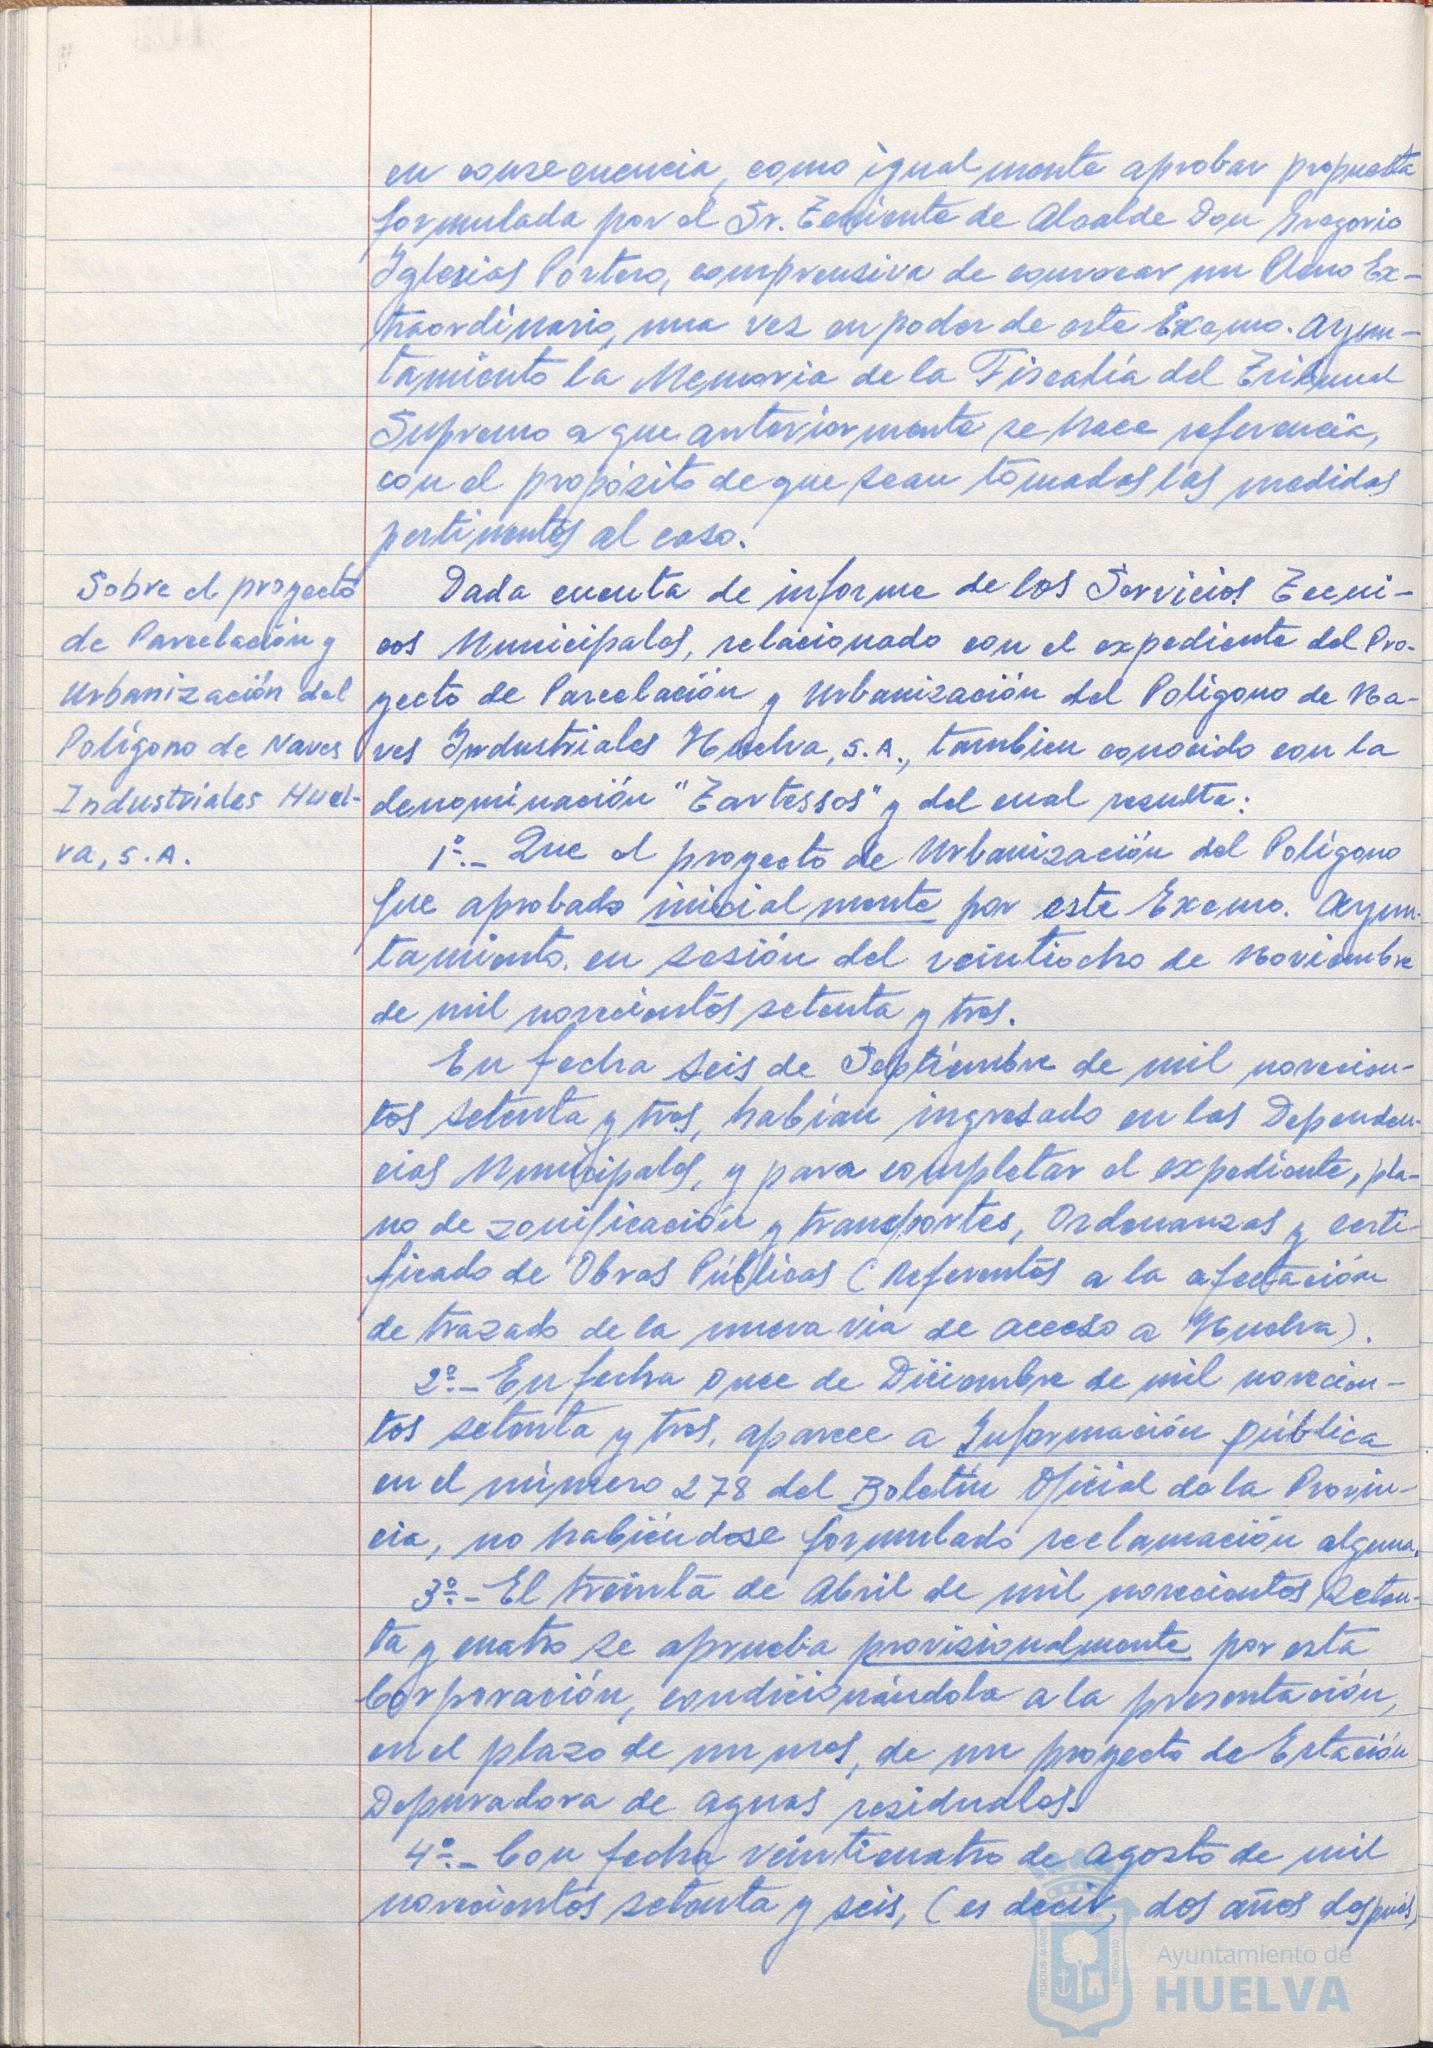 en consecuencia, como igualmente aprobar propuesta
formulada por el Sr. Teniente de Alcalde Don Gregorio
Iglesias Portero, comprensiva de convocar un Pleno Ex-
traordinario, una vez en poder de este Excmo. Ayun-
tamiento la Memoria de la Fiscalía del Tribunal
Supremo a que anteriormente se hace referencia,
con el propósito de que sean tomadas las medidas
pertinentes al caso.
Sobre el proyecto
de Parcelación y
Urbanización del
Polígono de Naves
Industriales Huel-
va, S.A.
Dada cuenta de informe de los Servicios Tecni-
cos Municipales, relacionado con el expediente del Pro-
yecto de Parcelación y Urbanización del Polígono de Na-
ves Industriales Huelva, S.A., tambien conocido con la
denominación "Tartessos" y del cual resulta:
1º.- Que el proyecto de Urbanización del Polígono
fue aprobado inicialmente por este Excmo. Ayun-
tamiento en sesión del veintiocho de Noviembre
de mil novecientos setenta y tres.
En fecha seis de Septiembre de mil novecien-
tos setenta y tres, habían ingresado en las Dependen-
cias Municipales, y para completar el expediente, pla-
no de zonificación y transportes, Ordenanzas y certi-
ficado de Obras Públicas (Referentes a la afectación
de trazado de la nueva via de acceso a Huelva).
2º.- En fecha once de Diciembre de mil novecien-
tos setenta y tres, aparece a Información pública
en el número 278 del Boletín Oficial de la Provin-
cia, no habiéndose formulado reclamación alguna.
3º.- El treinta de Abril de mil novecientos seten-
ta y cuatro se aprueba provisionalmente por esta
Corporación, condicionándola a la presentación,
en el plazo de un mes, de un proyecto de Estación
Depuradora de aguas residuales.
4º.- Con fecha veinticuatro de Agosto de mil
novecientos setenta y seis, (es decir, dos años después)
Ayuntamiento de
HUELVA